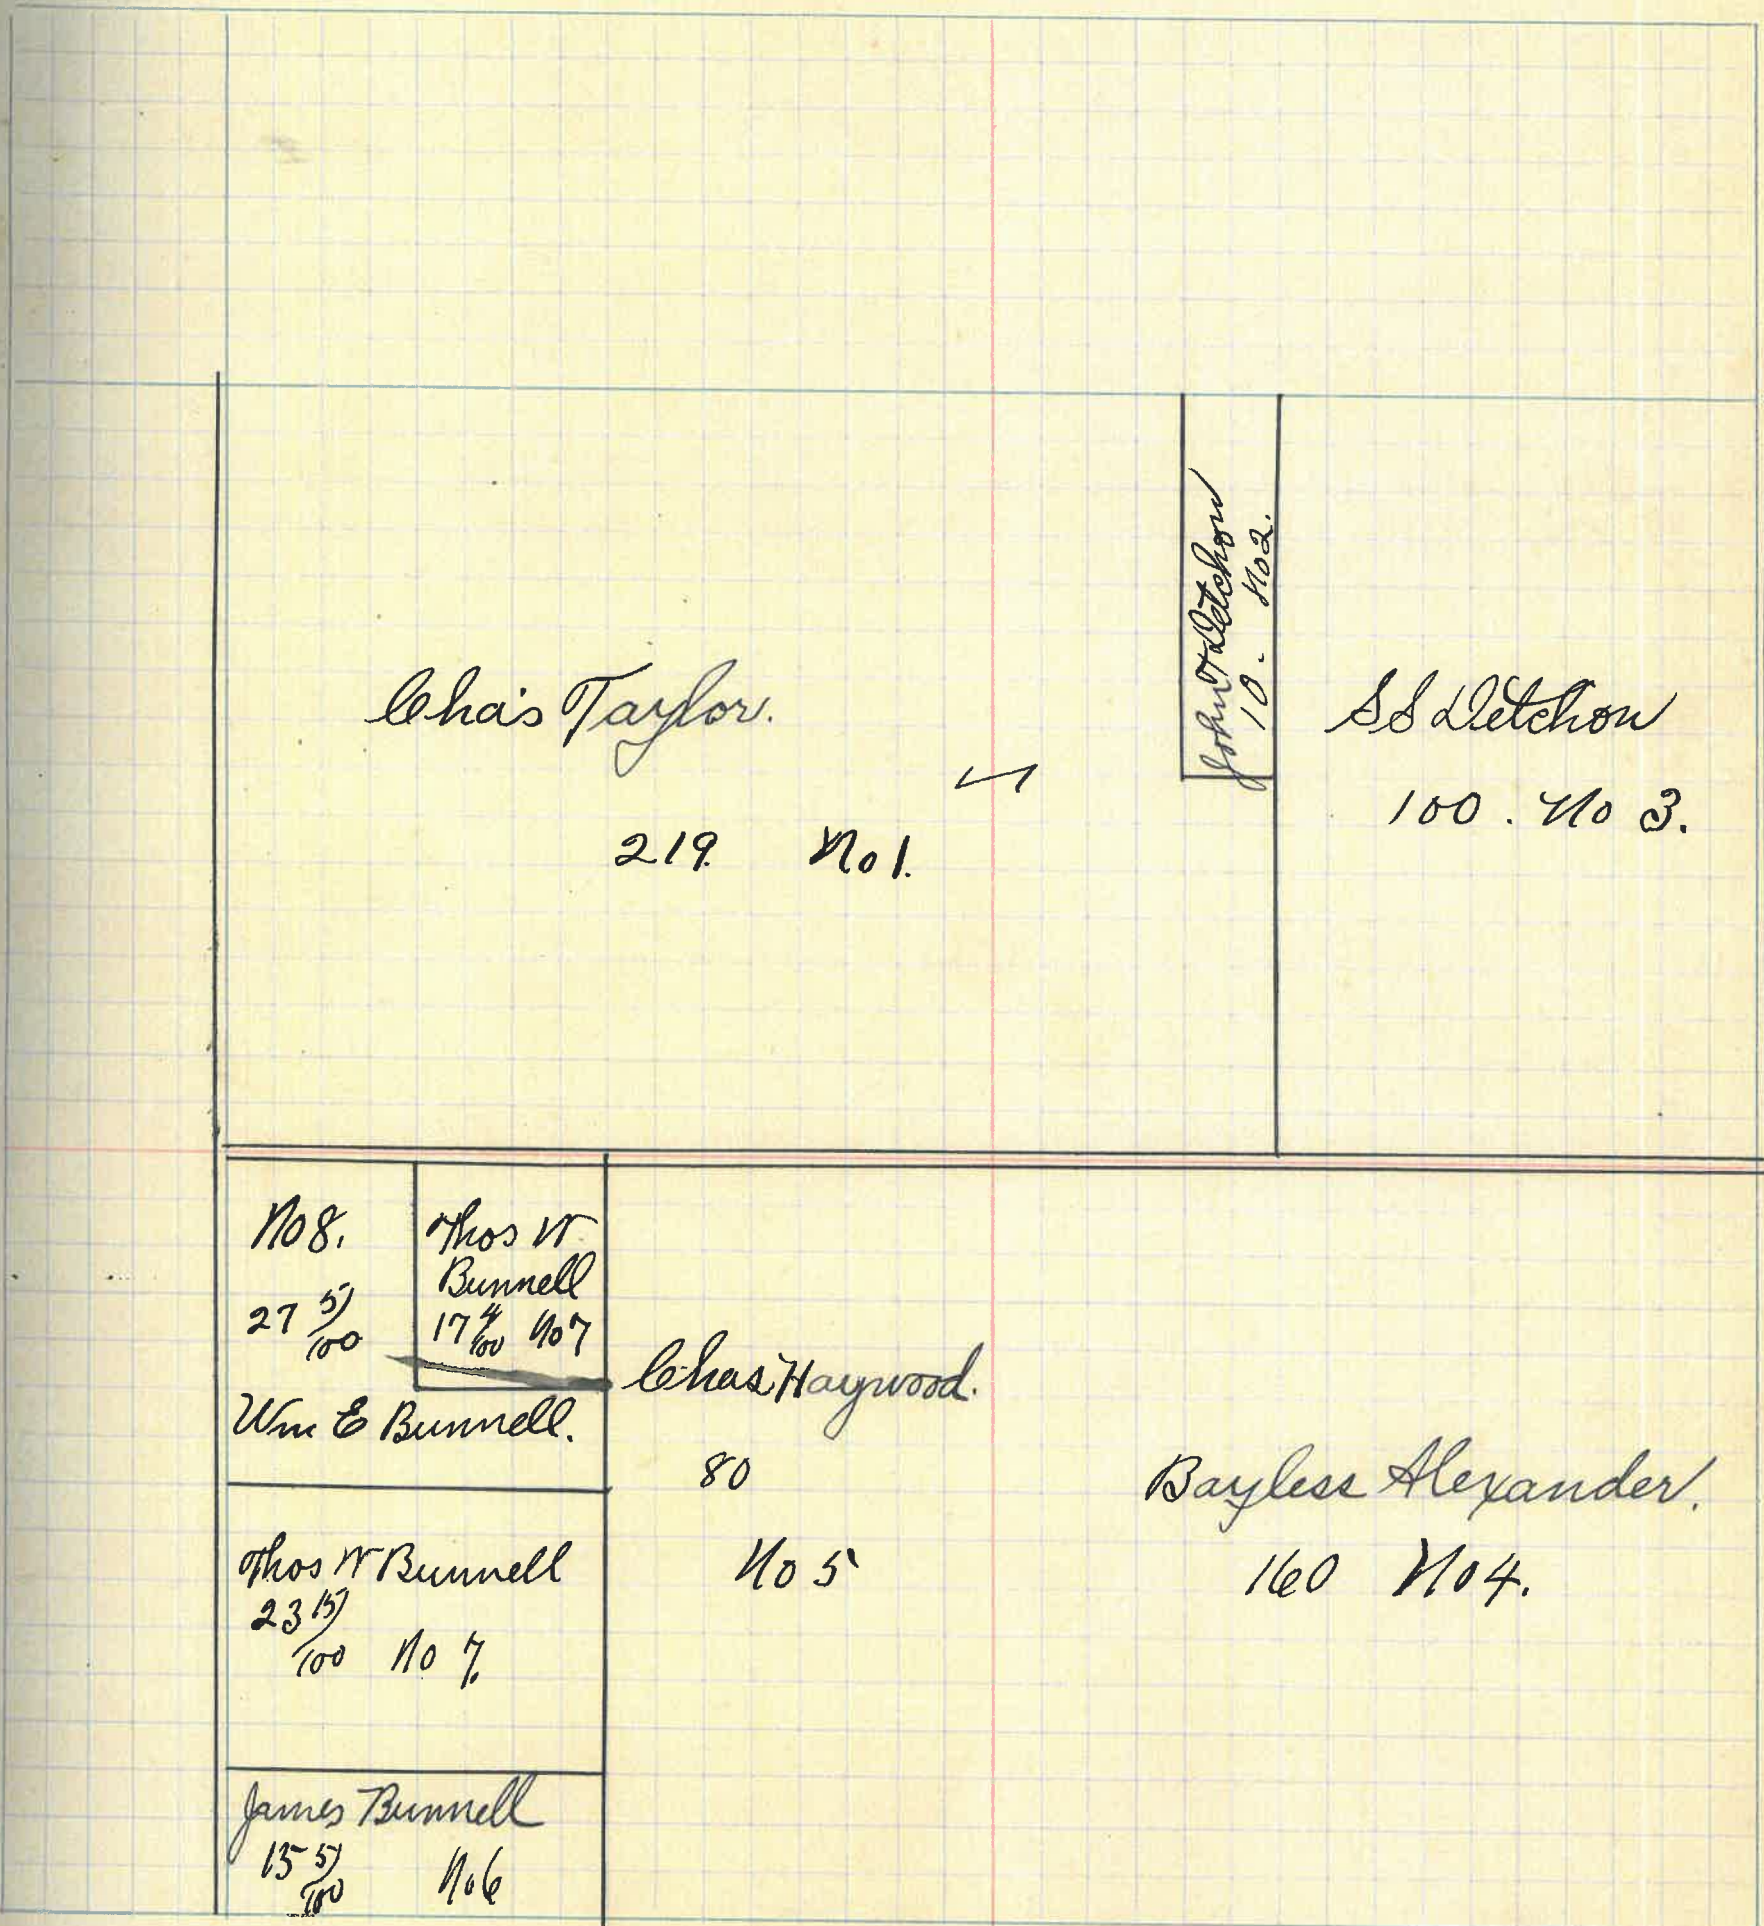 Chas Taylor.
219. No 1.
John T Detchon
10 - No 2.
S S Detchon
100. No 3.
No 8.
27 5/100
Wm E Bunnell.
Thos W
Bunnell
17 4/100 No 7
Chas Haywood.
80
No 5
Bayless Alexander.
160 No 4.
Thos W Bunnell
23 15/100 No 7.
James Bunnell
15 5/100 No 6